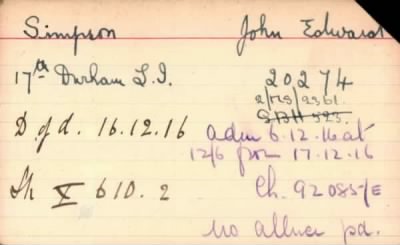 Simpson John Edward
17th Durham L.I. 20274
2/MS/2361.
SBH 523.
D of d. 16.12.16 adm 6.12.16 at
12/6 from 17.12.16
Sh X 610.2 Ch. 92085/E
no allnce pd.